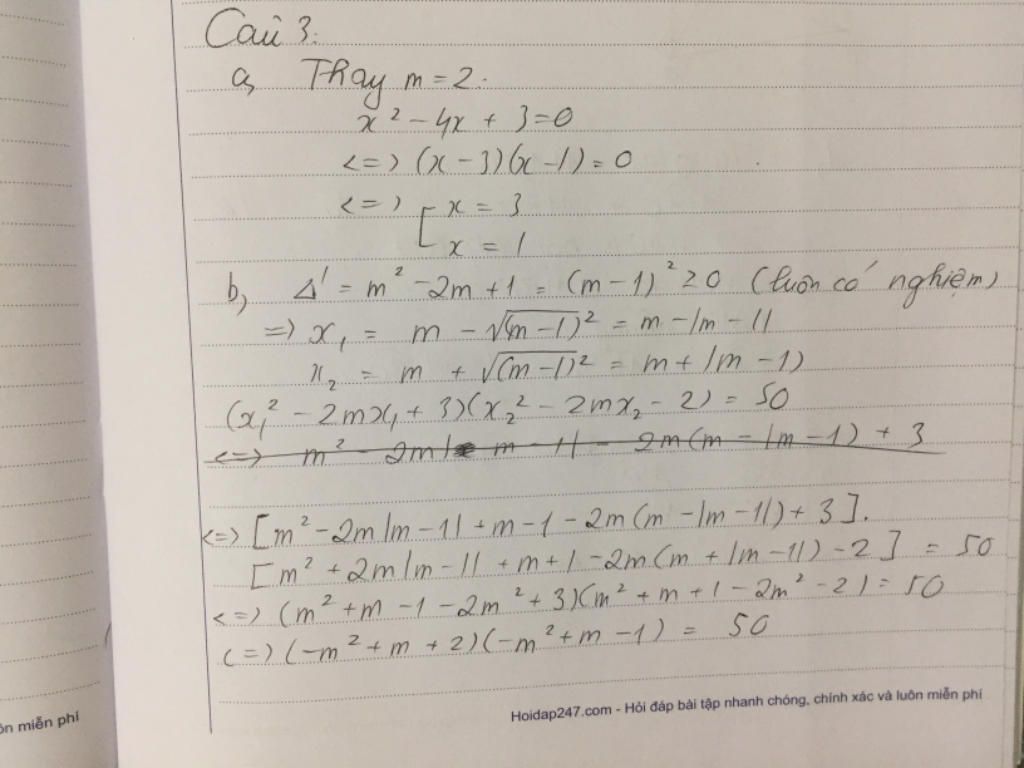 Câu 3:
a, Thay m = 2.
x² - 4x + 3 = 0
<=> (x - 3)(x - 1) = 0
<=> [ x = 3
x = 1
b, Δ' = m² - 2m + 1 = (m - 1)² ≥ 0 (luôn có nghiệm)
=> x₁ = m - √(m - 1)² = m - |m - 1|
x₂ = m + √(m - 1)² = m + |m - 1)
(x₁² - 2mx₁ + 3)(x₂² - 2mx₂ - 2) = 50
<=> m² - 2m| m - 1| - 2m(m - |m - 1) + 3
<=> [m² - 2m|m - 1| + m - 1 - 2m(m - |m - 1|) + 3].
[m² + 2m|m - 1| + m + 1 - 2m(m + |m - 1|) - 2] = 50
<=> (m² + m - 1 - 2m² + 3)(m² + m + 1 - 2m² - 2) = 50
<=> (-m² + m + 2)(-m² + m - 1) = 50
Hoidap247.com - Hỏi đáp bài tập nhanh chóng, chính xác và luôn miễn phí
ôn miễn phí